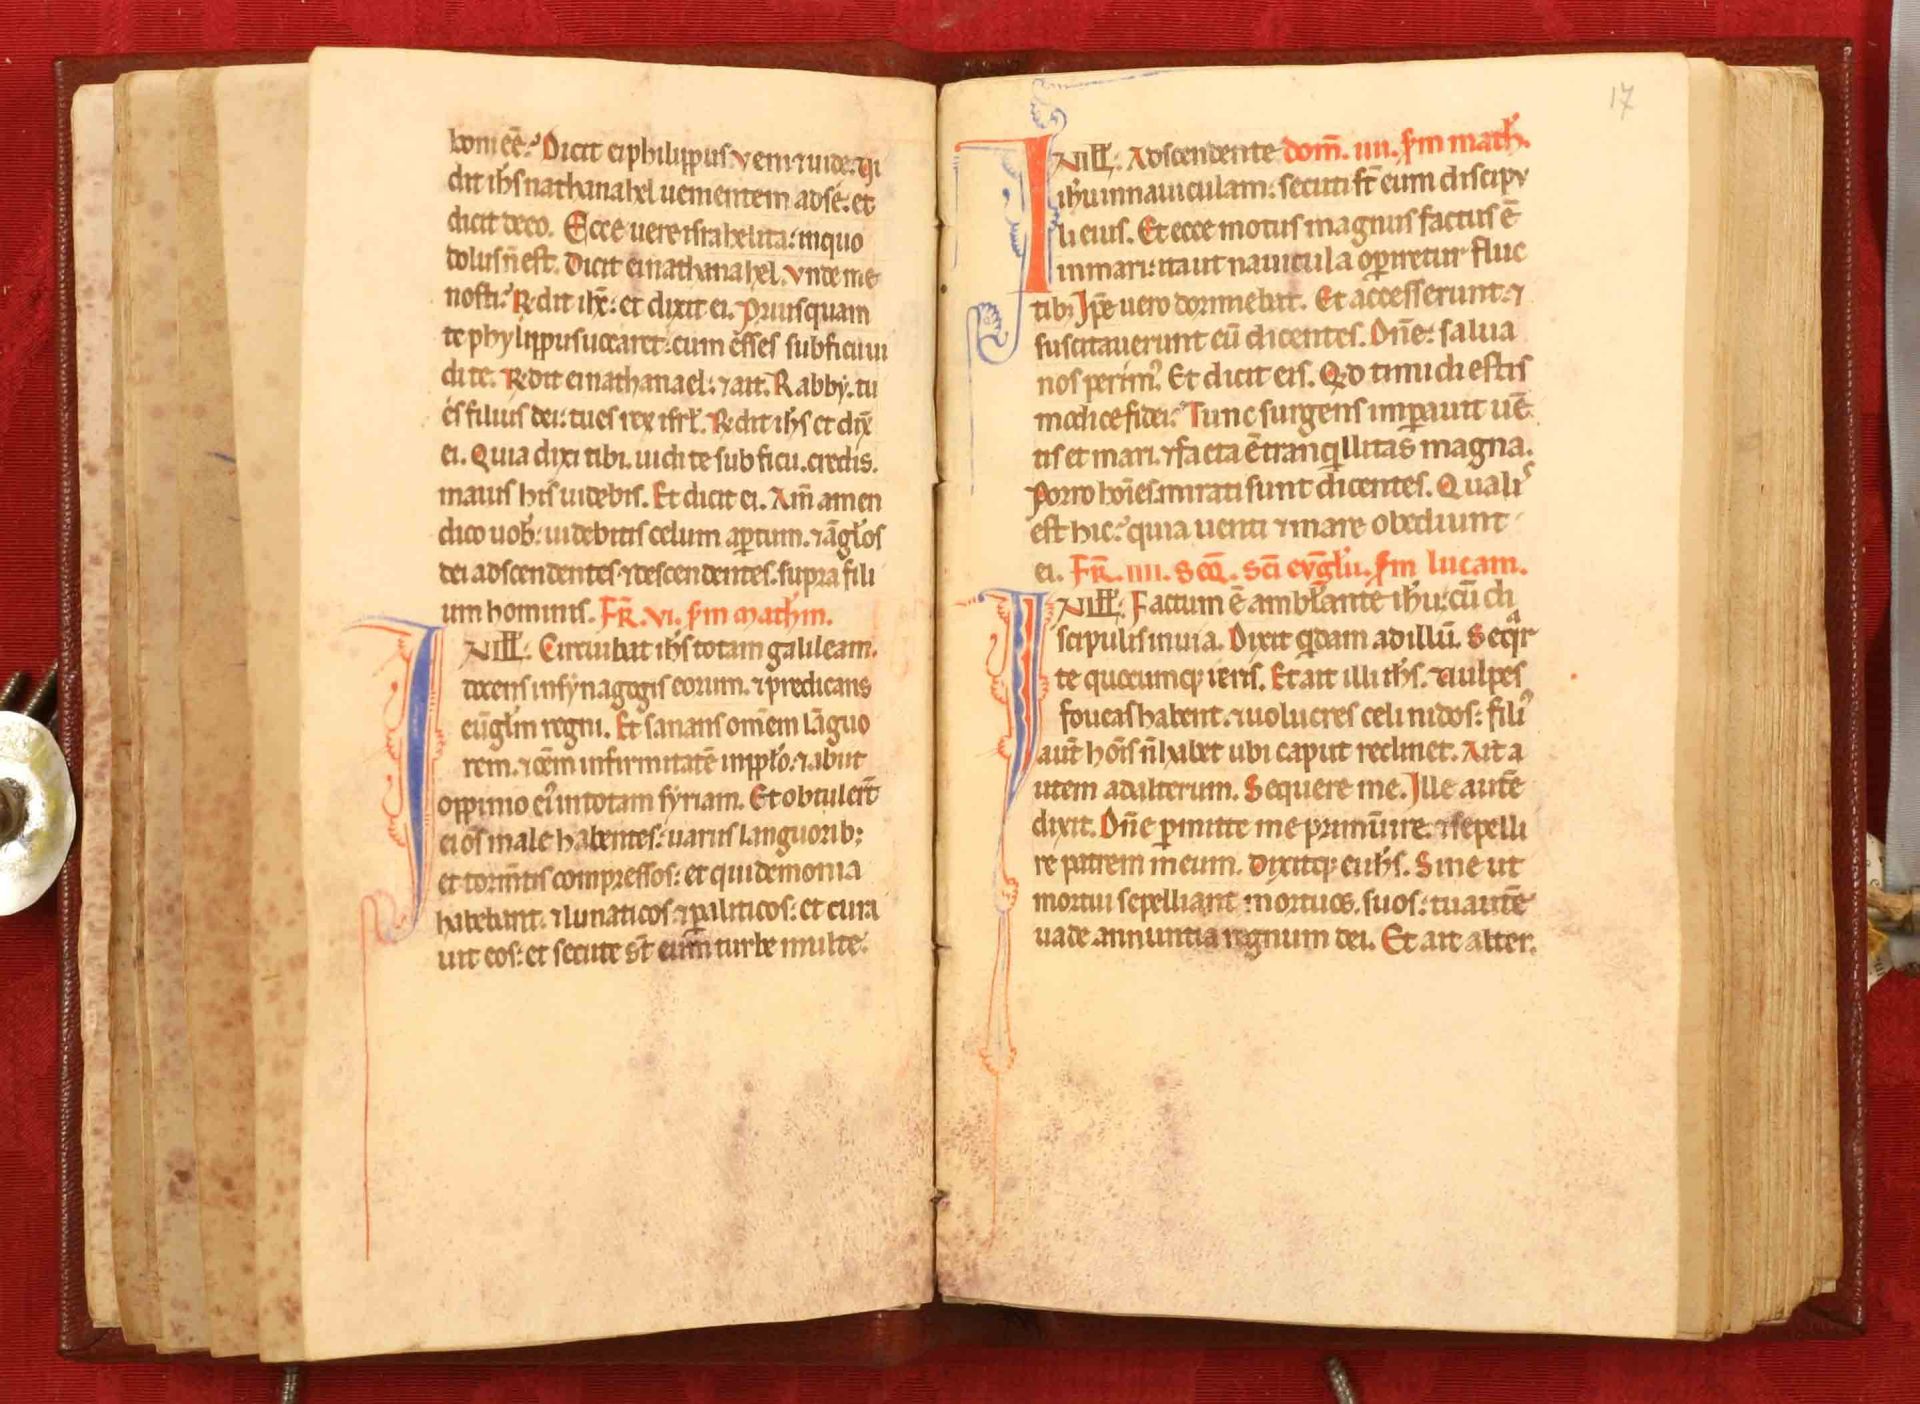 boni eē? Dicit ei philippus. Veni ⁊ uide. Ui
dit ihs nathanahel uenientem ad se: et
dicit de eo. Ecce uere israhelita: in quo
dolus ñ est. Dicit ei nathanahel. Vnde me
nosti? R̄dit ihc̄: et dixit ei. Priusquam
te phylippus uocaret: cum esses sub ficu ui
di te. R̄dit ei nathanael: ⁊ ait. Rabby. tu
es filius dei: tu es rex isrł. R̄dit ihs et dix̄
ei. Quia dixi tibi. uidi te sub ficu. credis.
maius his uidebis. Et dicit ei. Am̄ amen
dico uob: uidebitis celum aꝑtum. ⁊ āgłos
dei adscendentes ⁊ descendentes. supra fili
um hominis. FR̄. VI. s̄m mathm.
IN ILL: Circuibat ihs totam galileam.
docens in synagogis eorum. ⁊ predicans
euḡłm regni. Et sanans omēm lāguo
rem. ⁊ oēm infirmitatē in ppło. ⁊ abiit
oppinio eiꝰ in totam syriam. Et obtulerūt
ei oēs male habentes: uariis languorib;
et tormētis compressos: et qui demonia
habebant. ⁊ lunaticos ⁊ ꝑaliticos: et cura
uit eos: et secute st̄ eum turbe multe.
17
IN ILL: Adscendente dom̄. IIII. s̄m math.
ihu in nauiculam: secuti st̄ eum discipu
li eius. Et ecce motus magnus factus ē
in mari: ita ut nauicula oꝑiretur fluc
tibꝫ Ipse uero dormiebat. Et accesserunt. ⁊
suscitauerunt eū dicentes. Dn̄e: salua
nos perimꝰ. Et dicit eis. Qd timidi estis
modice fidei? Tunc surgens imꝑauit uē
tis et mari. ⁊ facta ē tranqillitas magna.
Porro hoīes mirati sunt dicentes. Qualis
est hic? quia uenti ⁊ mare obediunt
ei. FR̄. IIII. Seq̄. sc̄i euḡłii. s̄m lucam.
IN ILL: Factum ē ambłante ihu: cū di
scipulis in uia. Dixit qidam ad illū. Seqr
te quocumqꝫ ieris. Et ait illi ihs. ⁊ uulpes
foueas habent. ⁊ uolucres celi nidos: filiꝰ
aut̄ hoīs ñ habet ubi caput reclinet. Ait a
utem ad alterum. Sequere me. Ille autē
dixit. Dn̄e ꝑmitte me primū ire. ⁊ sepelli
re patrem meum. Dixitqꝫ ei ihs. Sine ut
mortui sepelliant mortuos. suos: tu autē
uade annuntia regnum dei. Et ait alter.